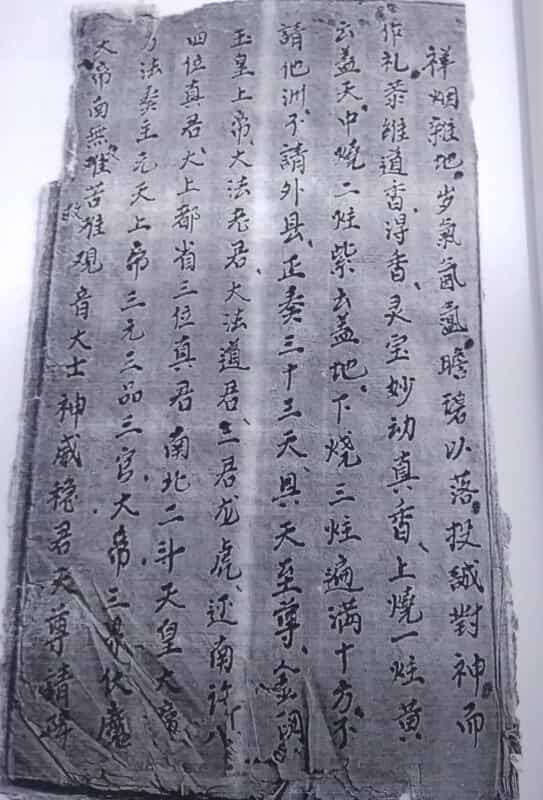 祥烟雜地岁氣氤氲瞻碧以落投誠對神而
作礼恭维道香得香灵宝妙动真香上燒一炷黄
云盖天中燒二炷紫云盖地下燒三炷遍满十方不
請他洲不請外县正奏三十三天具天至尊金闕
玉皇上帝大法老君大法道君三君龙虎还南許八
四位真君大上都省三位真君南北二斗天皇大帝
万法奏主元天上帝三元三品三官大帝三界伏魔
大帝南無难救苦难观音大士神威稳君天尊請降